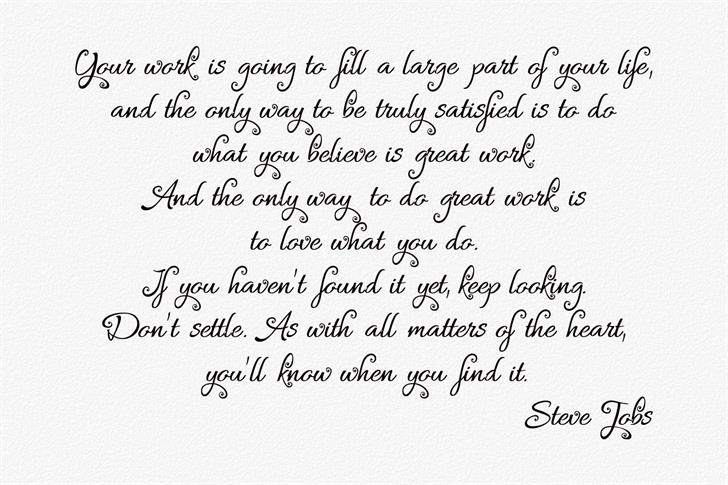 Your work is going to fill a large part of your life,
and the only way to be truly satisfied is to do
what you believe is great work.
And the only way to do great work is
to love what you do.
If you haven't found it yet, keep looking.
Don't settle. As with all matters of the heart,
you'll know when you find it.
Steve Jobs